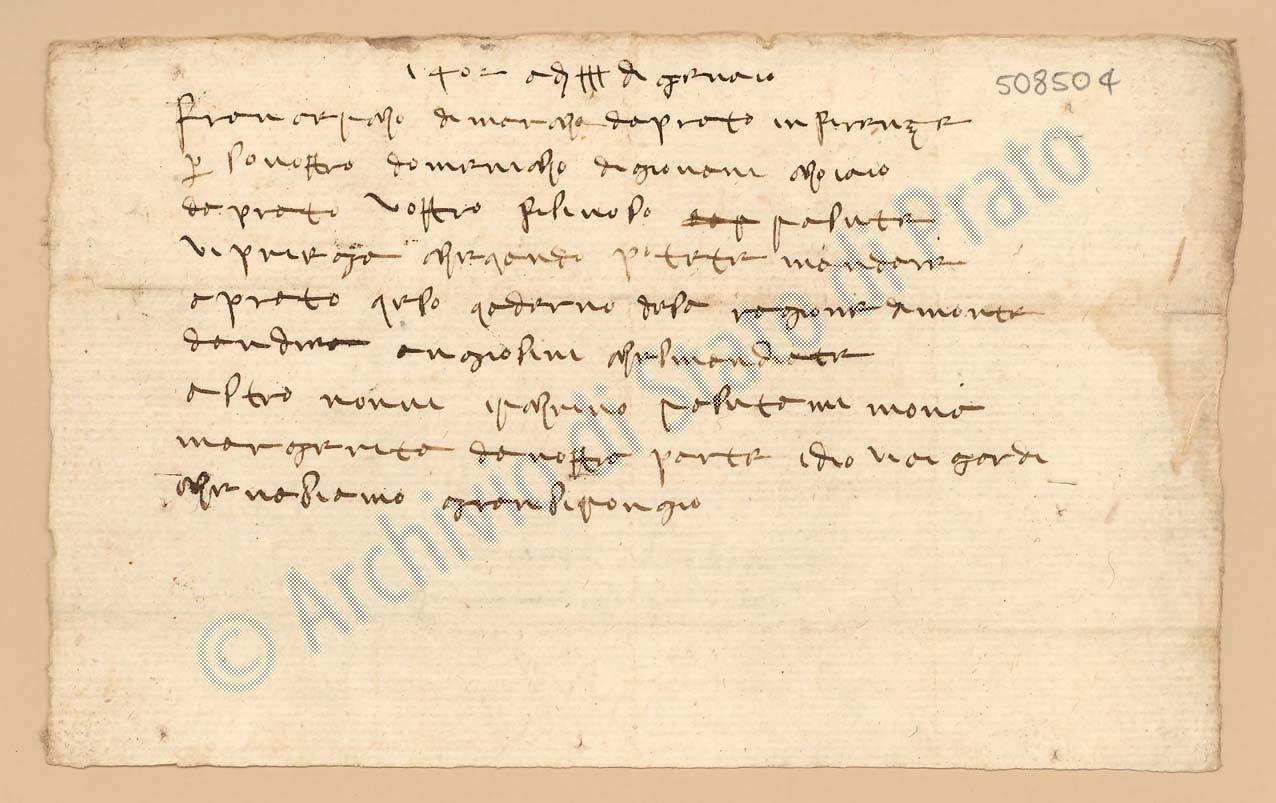 1402 a dì III di genaio
508504
franciescho di marcho da prato in firenze
per lo vostro domenicho di giovani choiaio
da prato vostro filiuolo salute
vi priegha che quando potete mandare
a prato quelo quaderno dela ragione di monte
d'andrea angiolini che li mandiate
altro no vi ischrivo salutami mona
margerita da vostra parte idio vi gardi
che n'abiamo gran bisongio
© Archivio di Stato di Prato